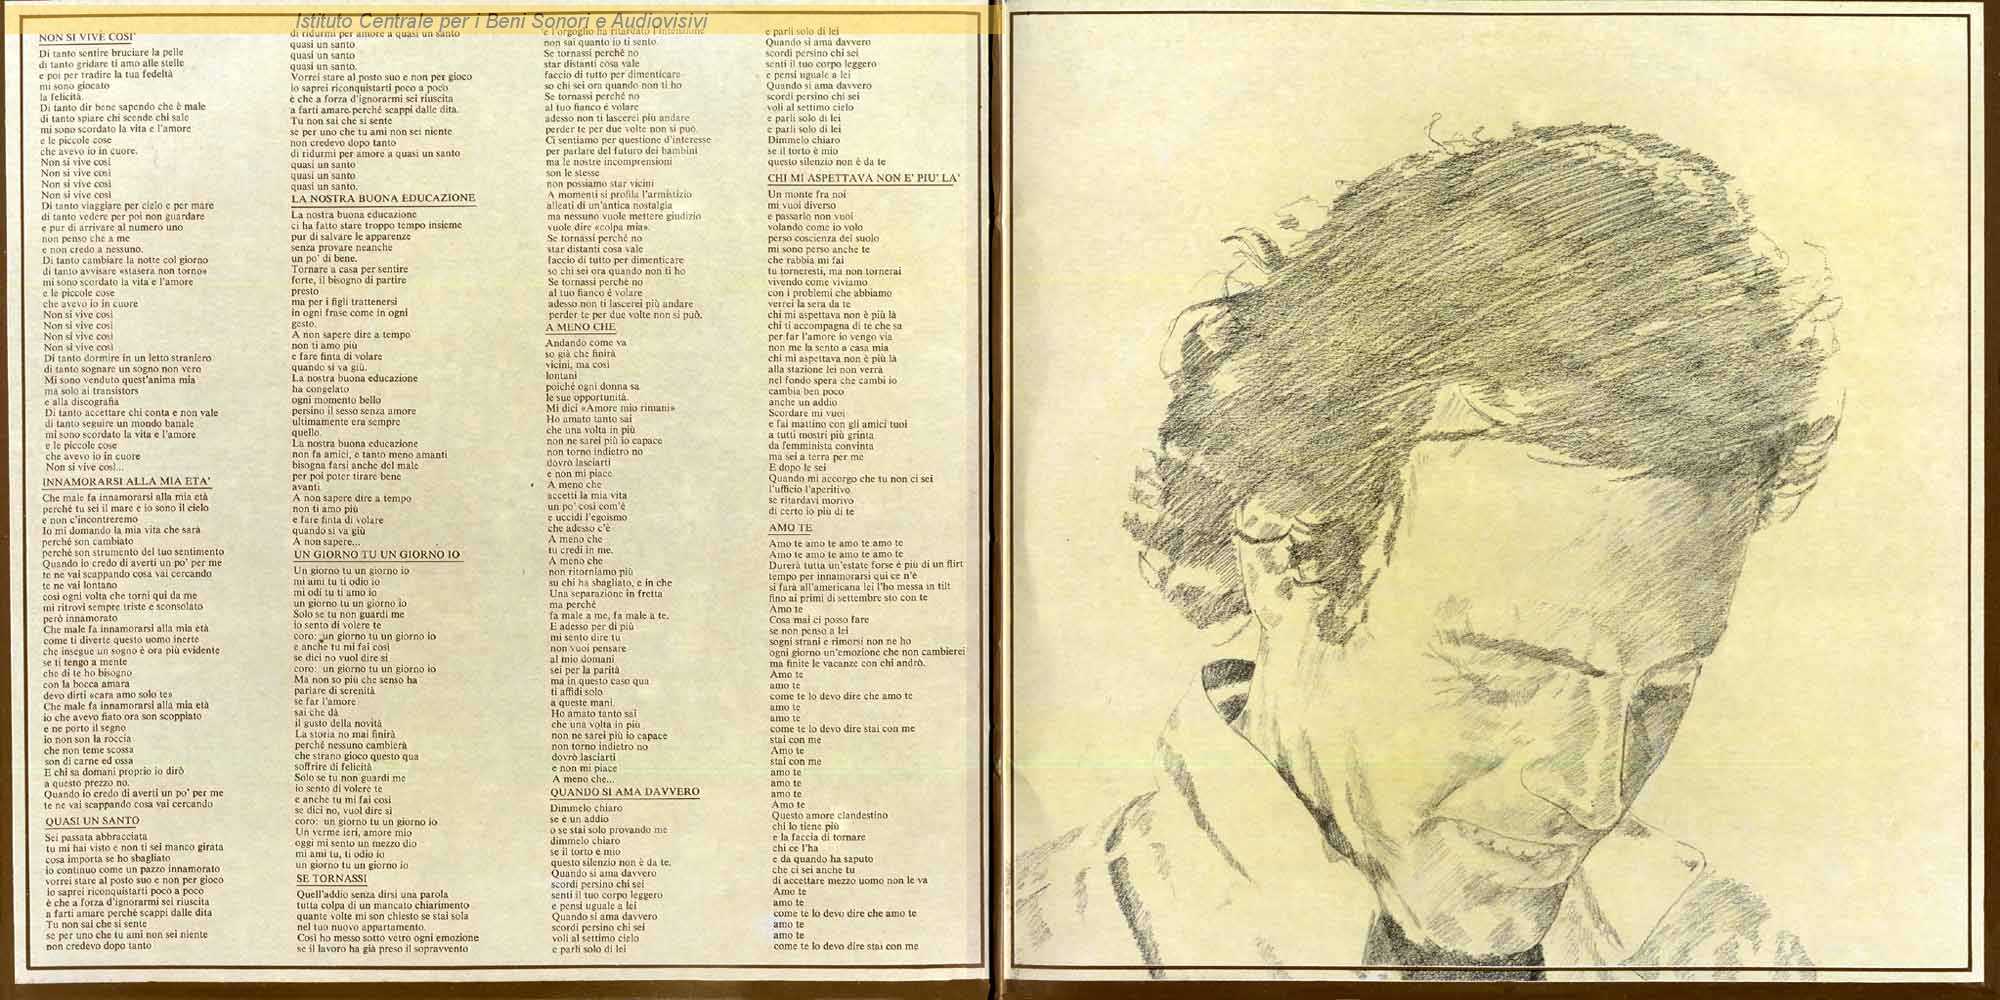 Istituto Centrale per i Beni Sonori e Audiovisivi
NON SI VIVE COSI'
Di tanto sentire bruciare la pelle
di tanto gridare ti amo alle stelle
e poi per tradire la tua fedeltà
mi sono giocato
la felicità.
Di tanto dir bene sapendo che è male
di tanto spiare chi scende chi sale
mi sono scordato la vita e l'amore
e le piccole cose
che avevo io in cuore.
Non si vive così
Non si vive così
Non si vive così
Non si vive così
Di tanto viaggiare per cielo e per mare
di tanto vedere per poi non guardare
e pur di arrivare al numero uno
non penso che a me
e non credo a nessuno.
Di tanto cambiare la notte col giorno
di tanto avvisare «stasera non torno»
mi sono scordato la vita e l'amore
e le piccole cose
che avevo io in cuore
Non si vive così
Non si vive così
Non si vive così
Non si vive così
Di tanto dormire in un letto straniero
di tanto sognare un sogno non vero
Mi sono venduto quest'anima mia
ma solo ai transistors
e alla discografia
Di tanto accettare chi conta e non vale
di tanto seguire un mondo banale
mi sono scordato la vita e l'amore
e le piccole cose
che avevo io in cuore
Non si vive così...
INNAMORARSI ALLA MIA ETA'
Che male fa innamorarsi alla mia età
perché tu sei il mare e io sono il cielo
e non c'incontreremo
Io mi domando la mia vita che sarà
perché son cambiato
perché son strumento del tuo sentimento
Quando io credo di averti un po' per me
te ne vai scappando cosa vai cercando
te ne vai lontano
così ogni volta che torni qui da me
mi ritrovi sempre triste e sconsolato
però innamorato
Che male fa innamorarsi alla mia età
come ti diverte questo uomo inerte
che insegue un sogno è ora più evidente
se ti tengo a mente
che di te ho bisogno
con la bocca amara
devo dirti «cara amo solo te»
Che male fa innamorarsi alla mia età
io che avevo fiato ora son scoppiato
e ne porto il segno
io non son la roccia
che non teme scossa
son di carne ed ossa
E chi sa domani proprio io dirò
a questo prezzo no.
Quando io credo di averti un po' per me
te ne vai scappando cosa vai cercando
QUASI UN SANTO
Sei passata abbracciata
tu mi hai visto e non ti sei manco girata
cosa importa se ho sbagliato
io continuo come un pazzo innamorato
vorrei stare al posto suo e non per gioco
io saprei riconquistarti poco a poco
è che a forza d'ignorarmi sei riuscita
a farti amare perché scappi dalle dita
Tu non sai che si sente
se per uno che tu ami non sei niente
non credevo dopo tanto
di ridurmi per amore a quasi un santo
quasi un santo
quasi un santo
quasi un santo.
Vorrei stare al posto suo e non per gioco
io saprei riconquistarti poco a poco
è che a forza d'ignorarmi sei riuscita
a farti amare perché scappi dalle dita.
Tu non sai che si sente
se per uno che tu ami non sei niente
non credevo dopo tanto
di ridurmi per amore a quasi un santo
quasi un santo
quasi un santo
quasi un santo.
LA NOSTRA BUONA EDUCAZIONE
La nostra buona educazione
ci ha fatto stare troppo tempo insieme
pur di salvare le apparenze
senza provare neanche
un po' di bene.
Tornare a casa per sentire
forte, il bisogno di partire
presto
ma per i figli trattenersi
in ogni frase come in ogni
gesto.
A non sapere dire a tempo
non ti amo più
e fare finta di volare
quando si va giù.
La nostra buona educazione
ha congelato
ogni momento bello
persino il sesso senza amore
ultimamente era sempre
quello.
La nostra buona educazione
non fa amici, e tanto meno amanti
bisogna farsi anche del male
per poi poter tirare bene
avanti.
A non sapere dire a tempo
non ti amo più
e fare finta di volare
quando si va giù
A non sapere...
UN GIORNO TU UN GIORNO IO
Un giorno tu un giorno io
mi ami tu ti odio io
mi odi tu ti amo io
un giorno tu un giorno io
Solo se tu non guardi me
io sento di volere te
coro: un giorno tu un giorno io
e anche tu mi fai così
se dici no vuol dire sì
coro: un giorno tu un giorno io
Ma non so più che senso ha
parlare di serenità
se far l'amore
sai che dà
il gusto della novità
La storia no mai finirà
perché nessuno cambierà
che strano gioco questo qua
soffrire di felicità
Solo se tu non guardi me
io sento di volere te
e anche tu mi fai così
se dici no, vuol dire sì
coro: un giorno tu un giorno io
Un verme ieri, amore mio
oggi mi sento un mezzo dio
mi ami tu, ti odio io
un giorno tu un giorno io
SE TORNASSI
Quell'addio senza dirsi una parola
tutta colpa di un mancato chiarimento
quante volte mi son chiesto se stai sola
nel tuo nuovo appartamento.
Così ho messo sotto vetro ogni emozione
se il lavoro ha già preso il sopravvento
e l'orgoglio ha ritardato l'intenzione
non sai quanto io ti sento.
Se tornassi perché no
star distanti cosa vale
faccio di tutto per dimenticare
so chi sei ora quando non ti ho
Se tornassi perché no
al tuo fianco è volare
adesso non ti lascerei più andare
perder te per due volte non si può.
Ci sentiamo per questione d'interesse
per parlare del futuro dei bambini
ma le nostre incomprensioni
son le stesse
non possiamo star vicini
A momenti si profila l'armistizio
alleati di un'antica nostalgia
ma nessuno vuole mettere giudizio
vuole dire «colpa mia».
Se tornassi perché no
star distanti cosa vale
faccio di tutto per dimenticare
so chi sei ora quando non ti ho
Se tornassi perché no
al tuo fianco è volare
adesso non ti lascerei più andare
perder te per due volte non si può.
A MENO CHE
Andando come va
so già che finirà
vicini, ma così
lontani
poiché ogni donna sa
le sue opportunità.
Mi dici «Amore mio rimani»
Ho amato tanto sai
che una volta in più
non ne sarei più io capace
non torno indietro no
dovrò lasciarti
e non mi piace
A meno che
accetti la mia vita
un po' così com'è
e uccidi l'egoismo
che adesso c'è
A meno che
tu credi in me.
A meno che
non ritorniamo più
su chi ha sbagliato, e in che
Una separazione in fretta
ma perché
fa male a me, fa male a te.
E adesso per di più
mi sento dire tu
non vuoi pensare
al mio domani
sei per la parità
ma in questo caso qua
ti affidi solo
a queste mani.
Ho amato tanto sai
che una volta in più
non ne sarei più io capace
non torno indietro no
dovrò lasciarti
e non mi piace
A meno che...
QUANDO SI AMA DAVVERO
Dimmelo chiaro
se è un addio
o se stai solo provando me
dimmelo chiaro
se il torto è mio
questo silenzio non è da te.
Quando si ama davvero
scordi persino chi sei
senti il tuo corpo leggero
e pensi uguale a lei
Quando si ama davvero
scordi persino chi sei
voli al settimo cielo
e parli solo di lei
e parli solo di lei
Quando si ama davvero
scordi persino chi sei
senti il tuo corpo leggero
e pensi uguale a lei
Quando si ama davvero
scordi persino chi sei
voli al settimo cielo
e parli solo di lei
e parli solo di lei
Dimmelo chiaro
se il torto è mio
questo silenzio non è da te
CHI MI ASPETTAVA NON E' PIU' LA'
Un monte fra noi
mi vuoi diverso
e passarlo non vuoi
volando come io volo
perso coscienza del suolo
mi sono perso anche te
che rabbia mi fai
tu torneresti, ma non tornerai
vivendo come viviamo
con i problemi che abbiamo
verrei la sera da te
chi mi aspettava non è più là
chi ti accompagna di te che sa
per far l'amore io vengo via
non me la sento a casa mia
chi mi aspettava non è più là
alla stazione lei non verrà
nel fondo spera che cambi io
cambia ben poco
anche un addio
Scordare mi vuoi
e fai mattino con gli amici tuoi
a tutti mostri più grinta
da femminista convinta
ma sei a terra per me
E dopo le sei
Quando mi accorgo che tu non ci sei
l'ufficio l'aperitivo
se ritardavi morivo
di certo io più di te
AMO TE
Amo te amo te amo te amo te
Amo te amo te amo te amo te
Durerà tutta un'estate forse è più di un flirt
tempo per innamorarsi qui ce n'è
si farà all'americana lei l'ho messa in tilt
fino ai primi di settembre sto con te
Amo te
Cosa mai ci posso fare
se non penso a lei
sogni strani e rimorsi non ne ho
ogni giorno un'emozione che non cambierei
ma finite le vacanze con chi andrò.
Amo te
amo te
come te lo devo dire che amo te
amo te
amo te
come te lo devo dire stai con me
stai con me
Amo te
stai con me
amo te
amo te
amo te
Amo te
Questo amore clandestino
chi lo tiene più
e la faccia di tornare
chi ce l'ha
e da quando ha saputo
che ci sei anche tu
di accettare mezzo uomo non le va
Amo te
amo te
come te lo devo dire che amo te
amo te
amo te
come te lo devo dire stai con me